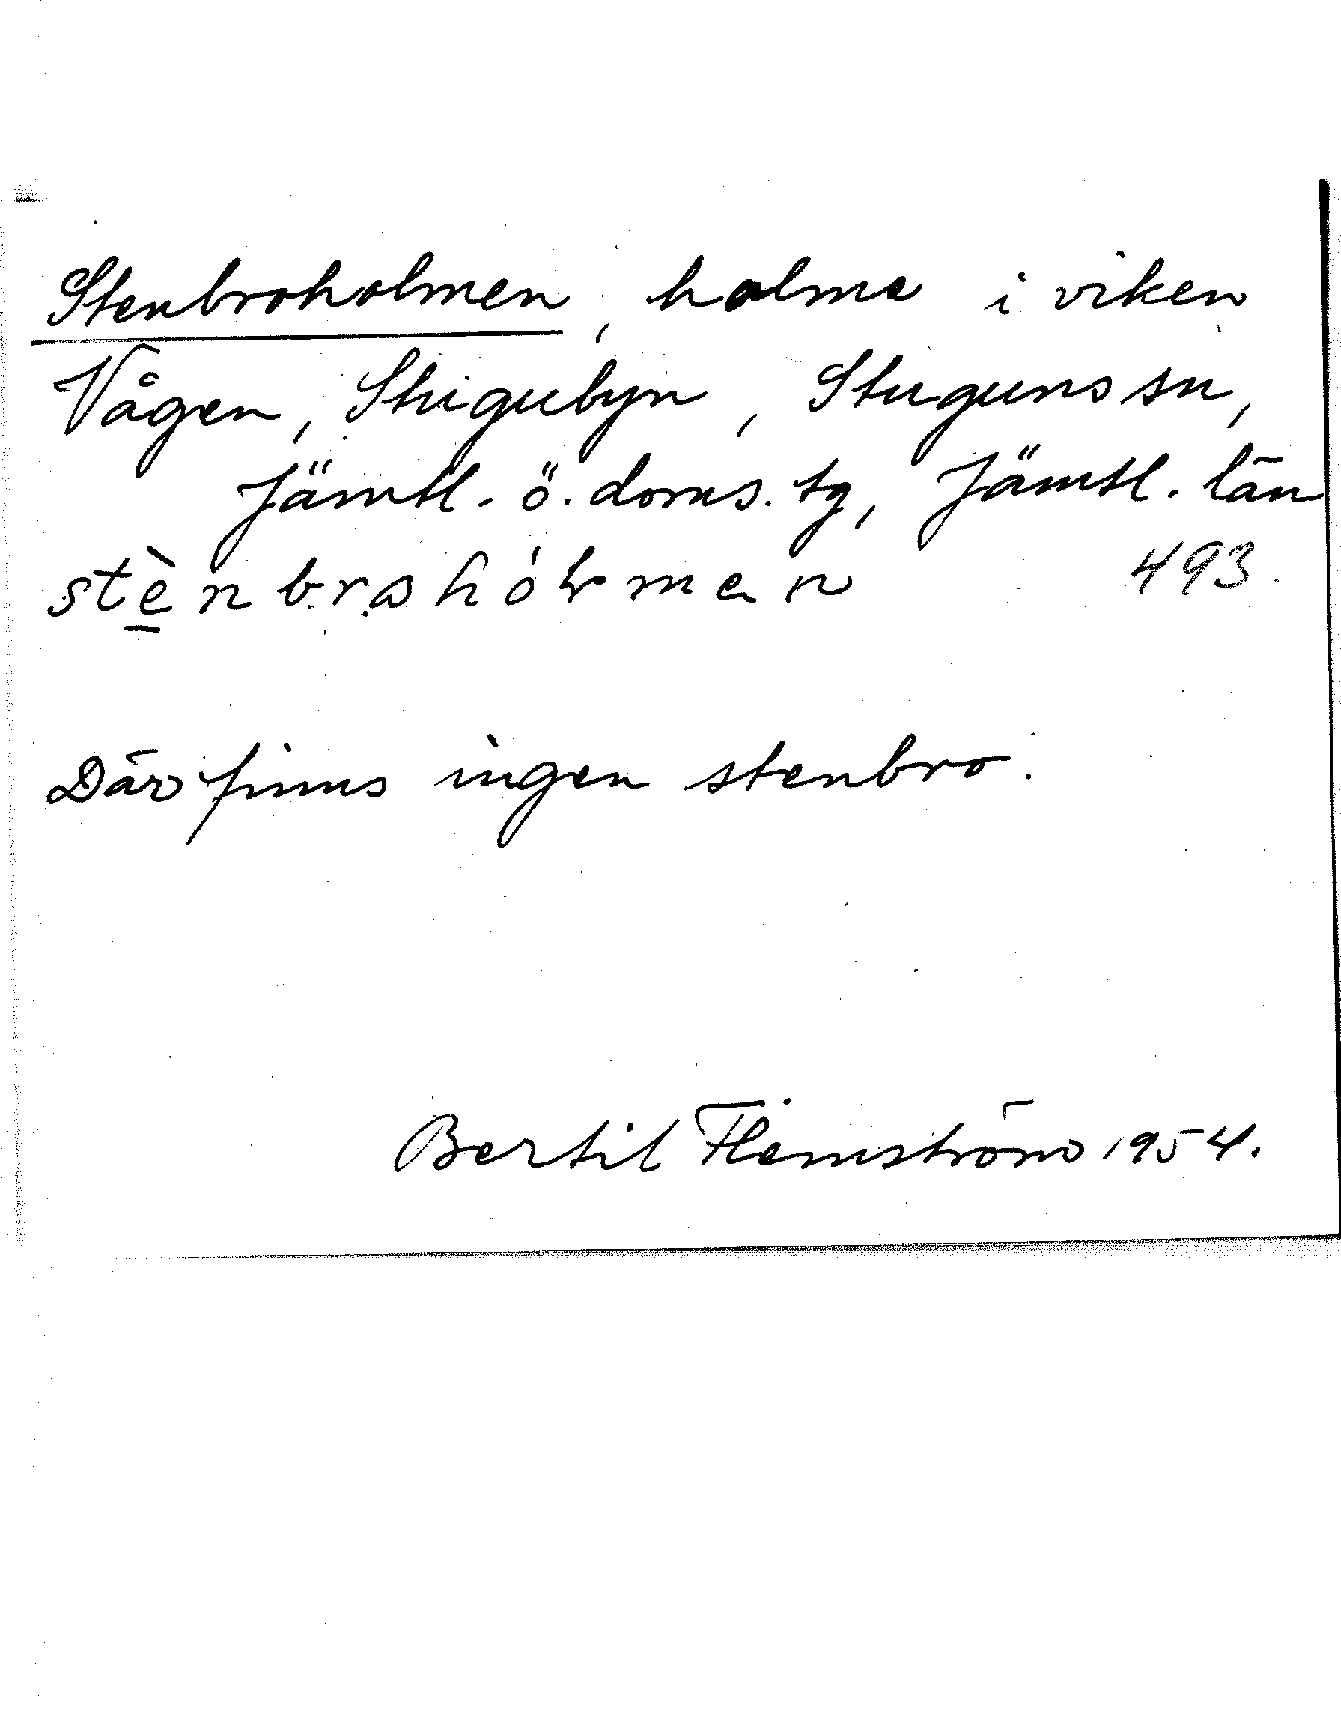 Stenbroholmen, holme i viken
Vågen, Stugubyn, Stuguns sn,
Jämtl. ö. doms. tg, Jämtl. län
stènbrohólmen 493.
Där finns ingen stenbro.
Bertil Flemström 1954.